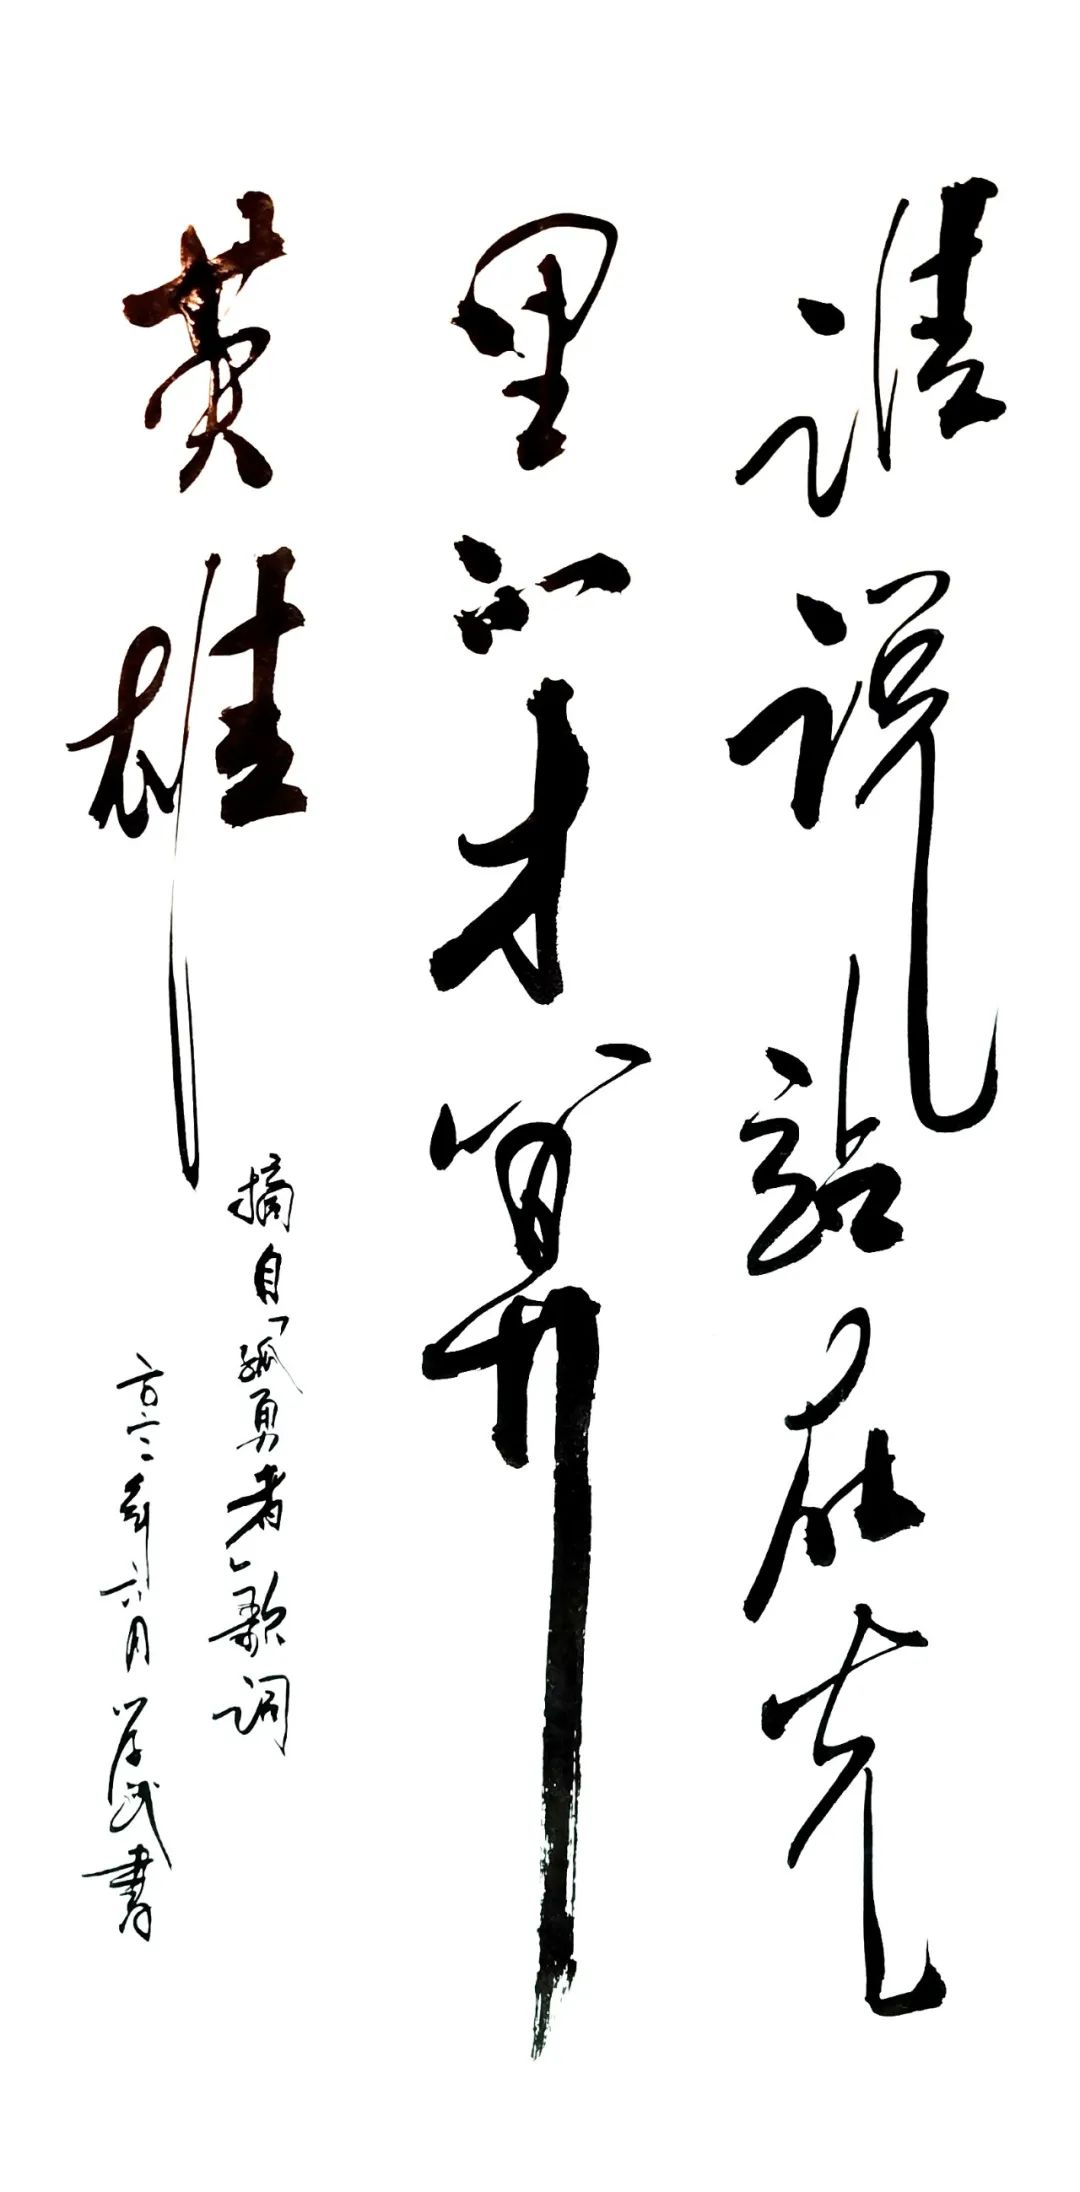 谁说站在光
里的才算
英雄
摘自「孤勇者」歌词
二〇二二年六月 学武書